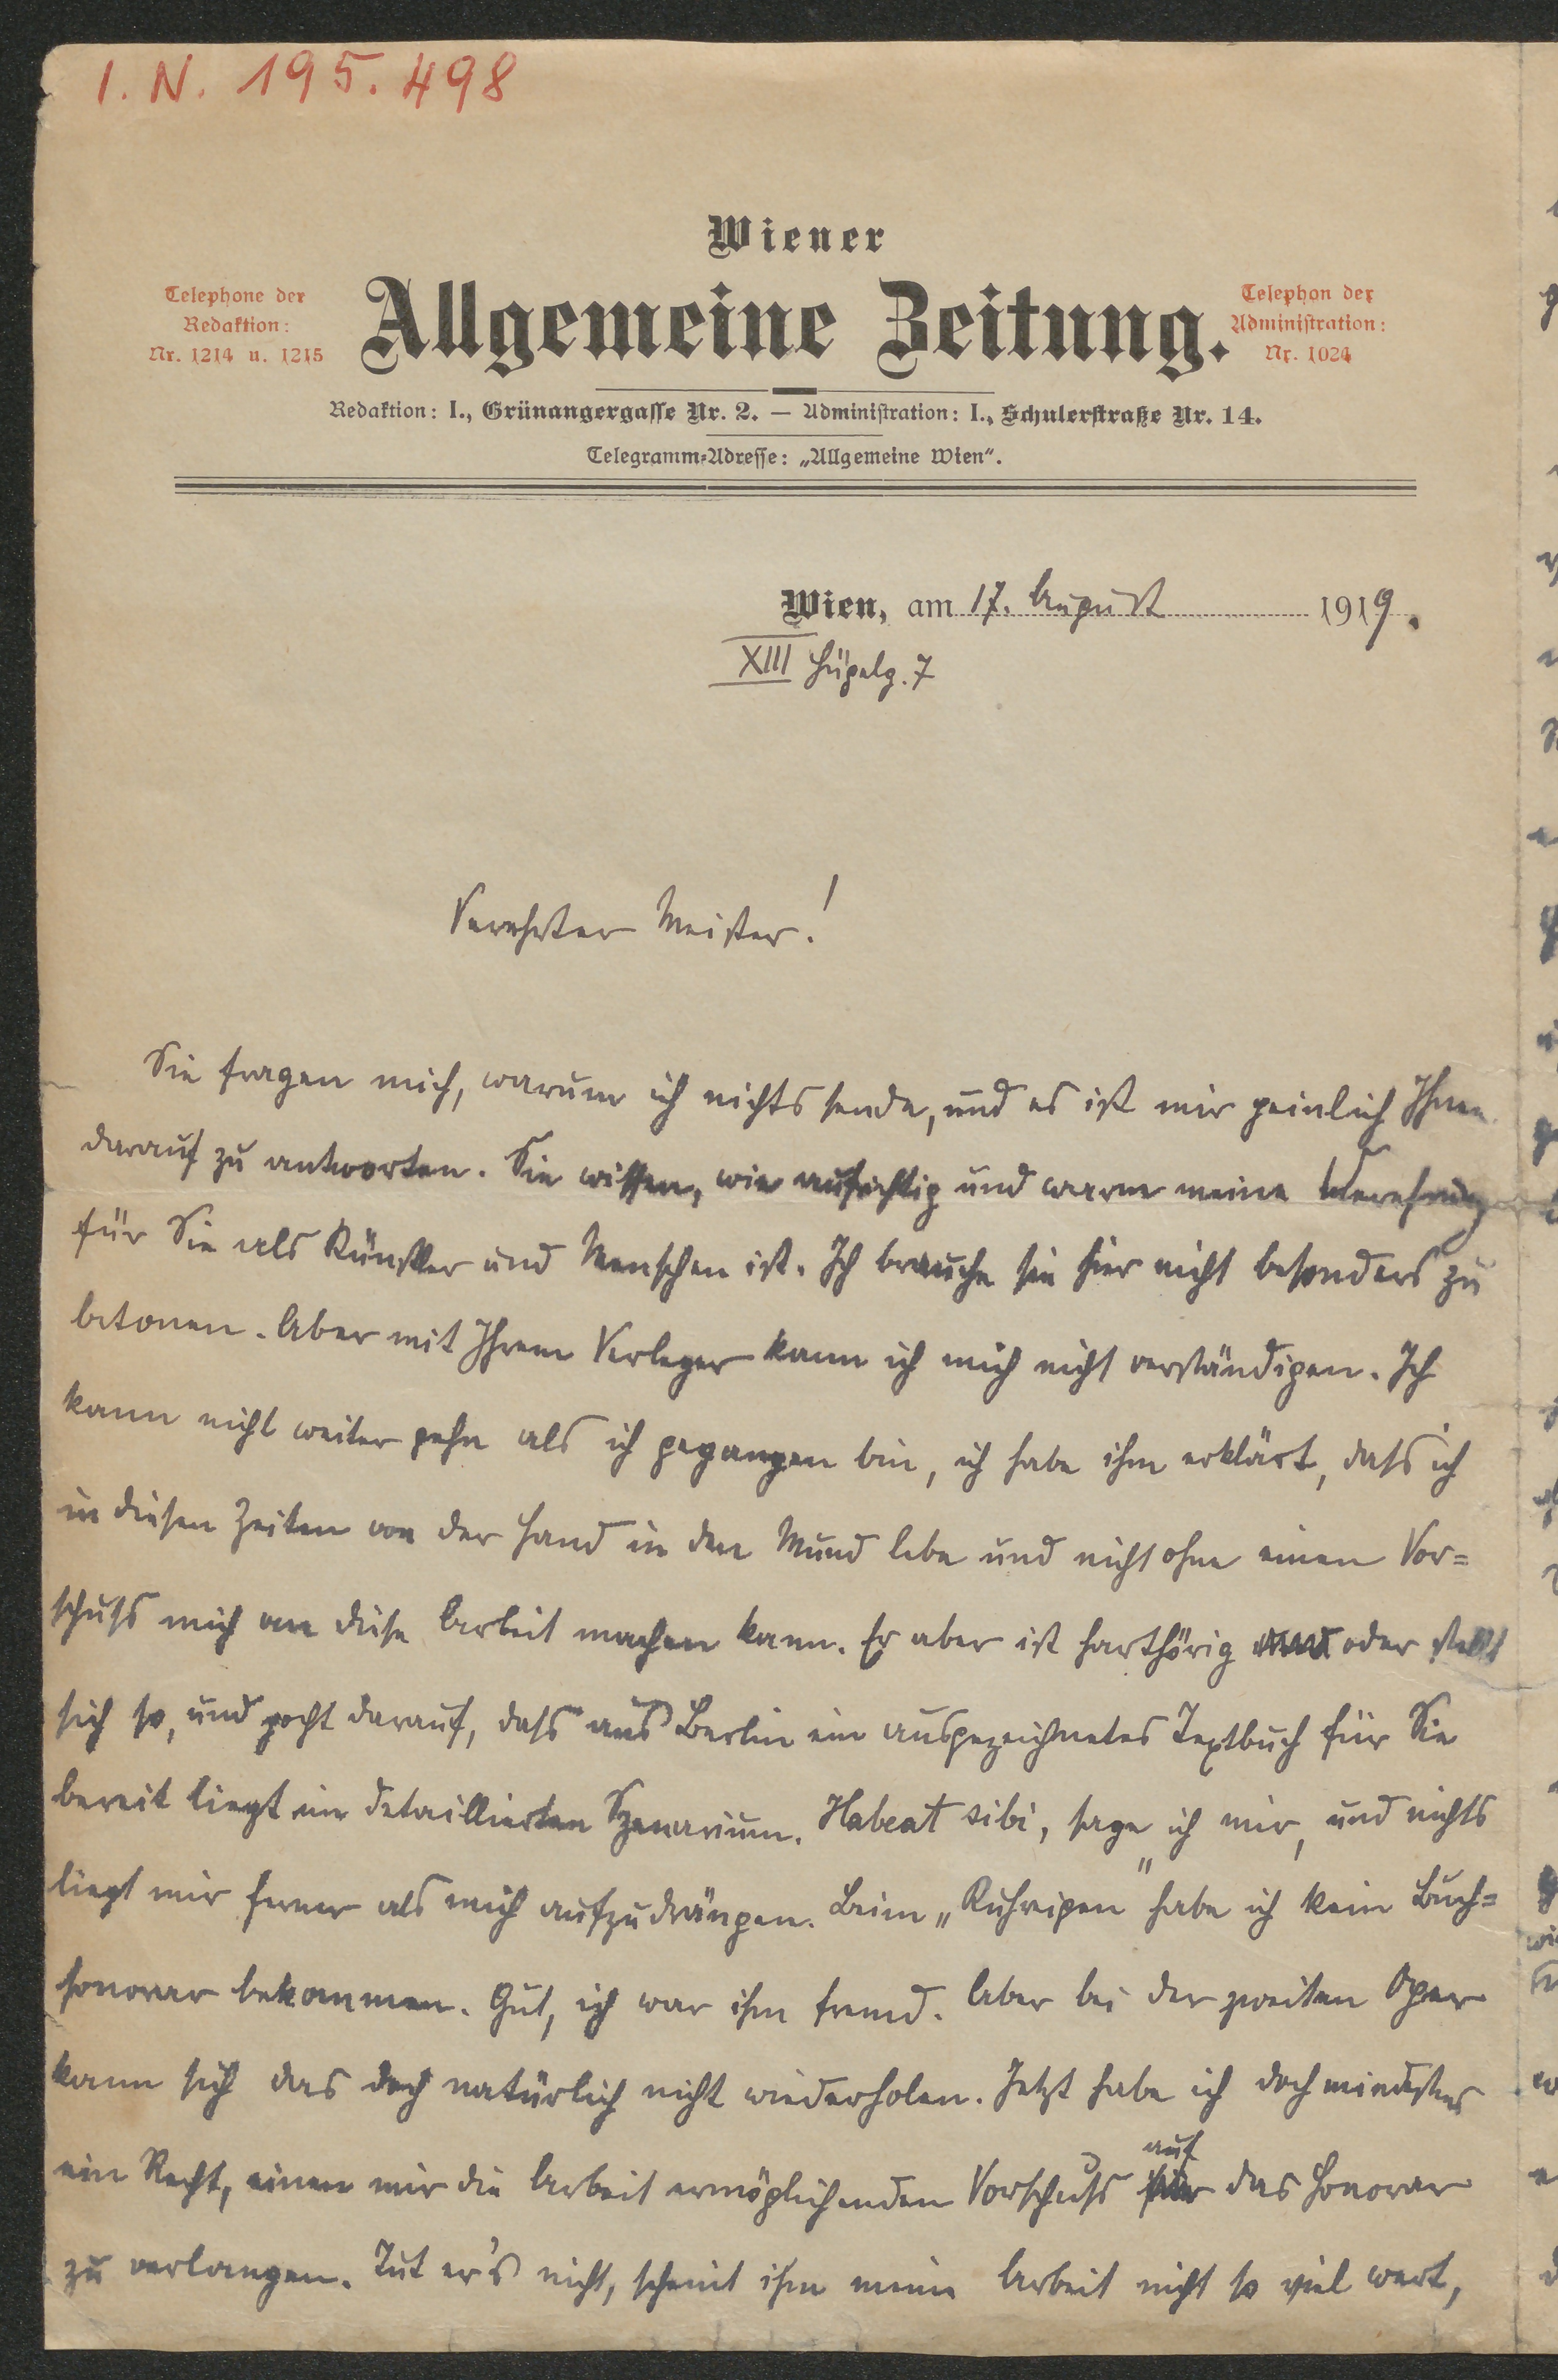 I. N. 195.498
Wiener
Allgemeine Zeitung.
Telephone der
Redaktion:
Nr. 1214 u. 1215
Telephon der
Administration:
Nr. 1024
Redaktion: I., Grünangergasse Nr. 2. — Administration: I., Schulerstraße Nr. 14.
Telegramm-Adresse: „Allgemeine Wien“.
Wien, am 17. August 1919.
XIII Hügelg. 7
Verehrter Meister!
Sie fragen mich, warum ich nichts sende, und es ist mir peinlich Ihnen
darauf zu antworten. Sie wissen, wie aufrichtig und warm meine Verehrung
für Sie als Künstler und Menschen ist. Ich brauche sie hier nicht besonders zu
betonen. Aber mit Ihrem Verleger kann ich mich nicht verständigen. Ich
kann nicht weiter gehn als ich gegangen bin, ich habe ihm erklärt, dass ich
in diesen Zeiten von der Hand in den Mund lebe und nicht ohne einen Vor=
schuss mich an diese Arbeit machen kann. Er aber ist harthörig oder stellt
sich so, und pocht darauf, dass aus Berlin ein ausgezeichnetes Textbuch für Sie
bereit liegt im detaillierten Szenarium. Habeat sibi, sage ich mir, und nichts
liegt mir ferner als mich aufzudrängen. Beim „Kuhreigen“ habe ich kein Buch=
honorar bekommen. Gut, ich war ihm fremd. Aber bei der zweiten Oper
kann sich das doch natürlich nicht wiederholen. Jetzt habe ich doch mindestens
ein Recht, einen mir die Arbeit ermöglichenden Vorschuss auf das Honorar
zu verlangen. Tut er's nicht, scheint ihm meine Arbeit nicht so viel wert,